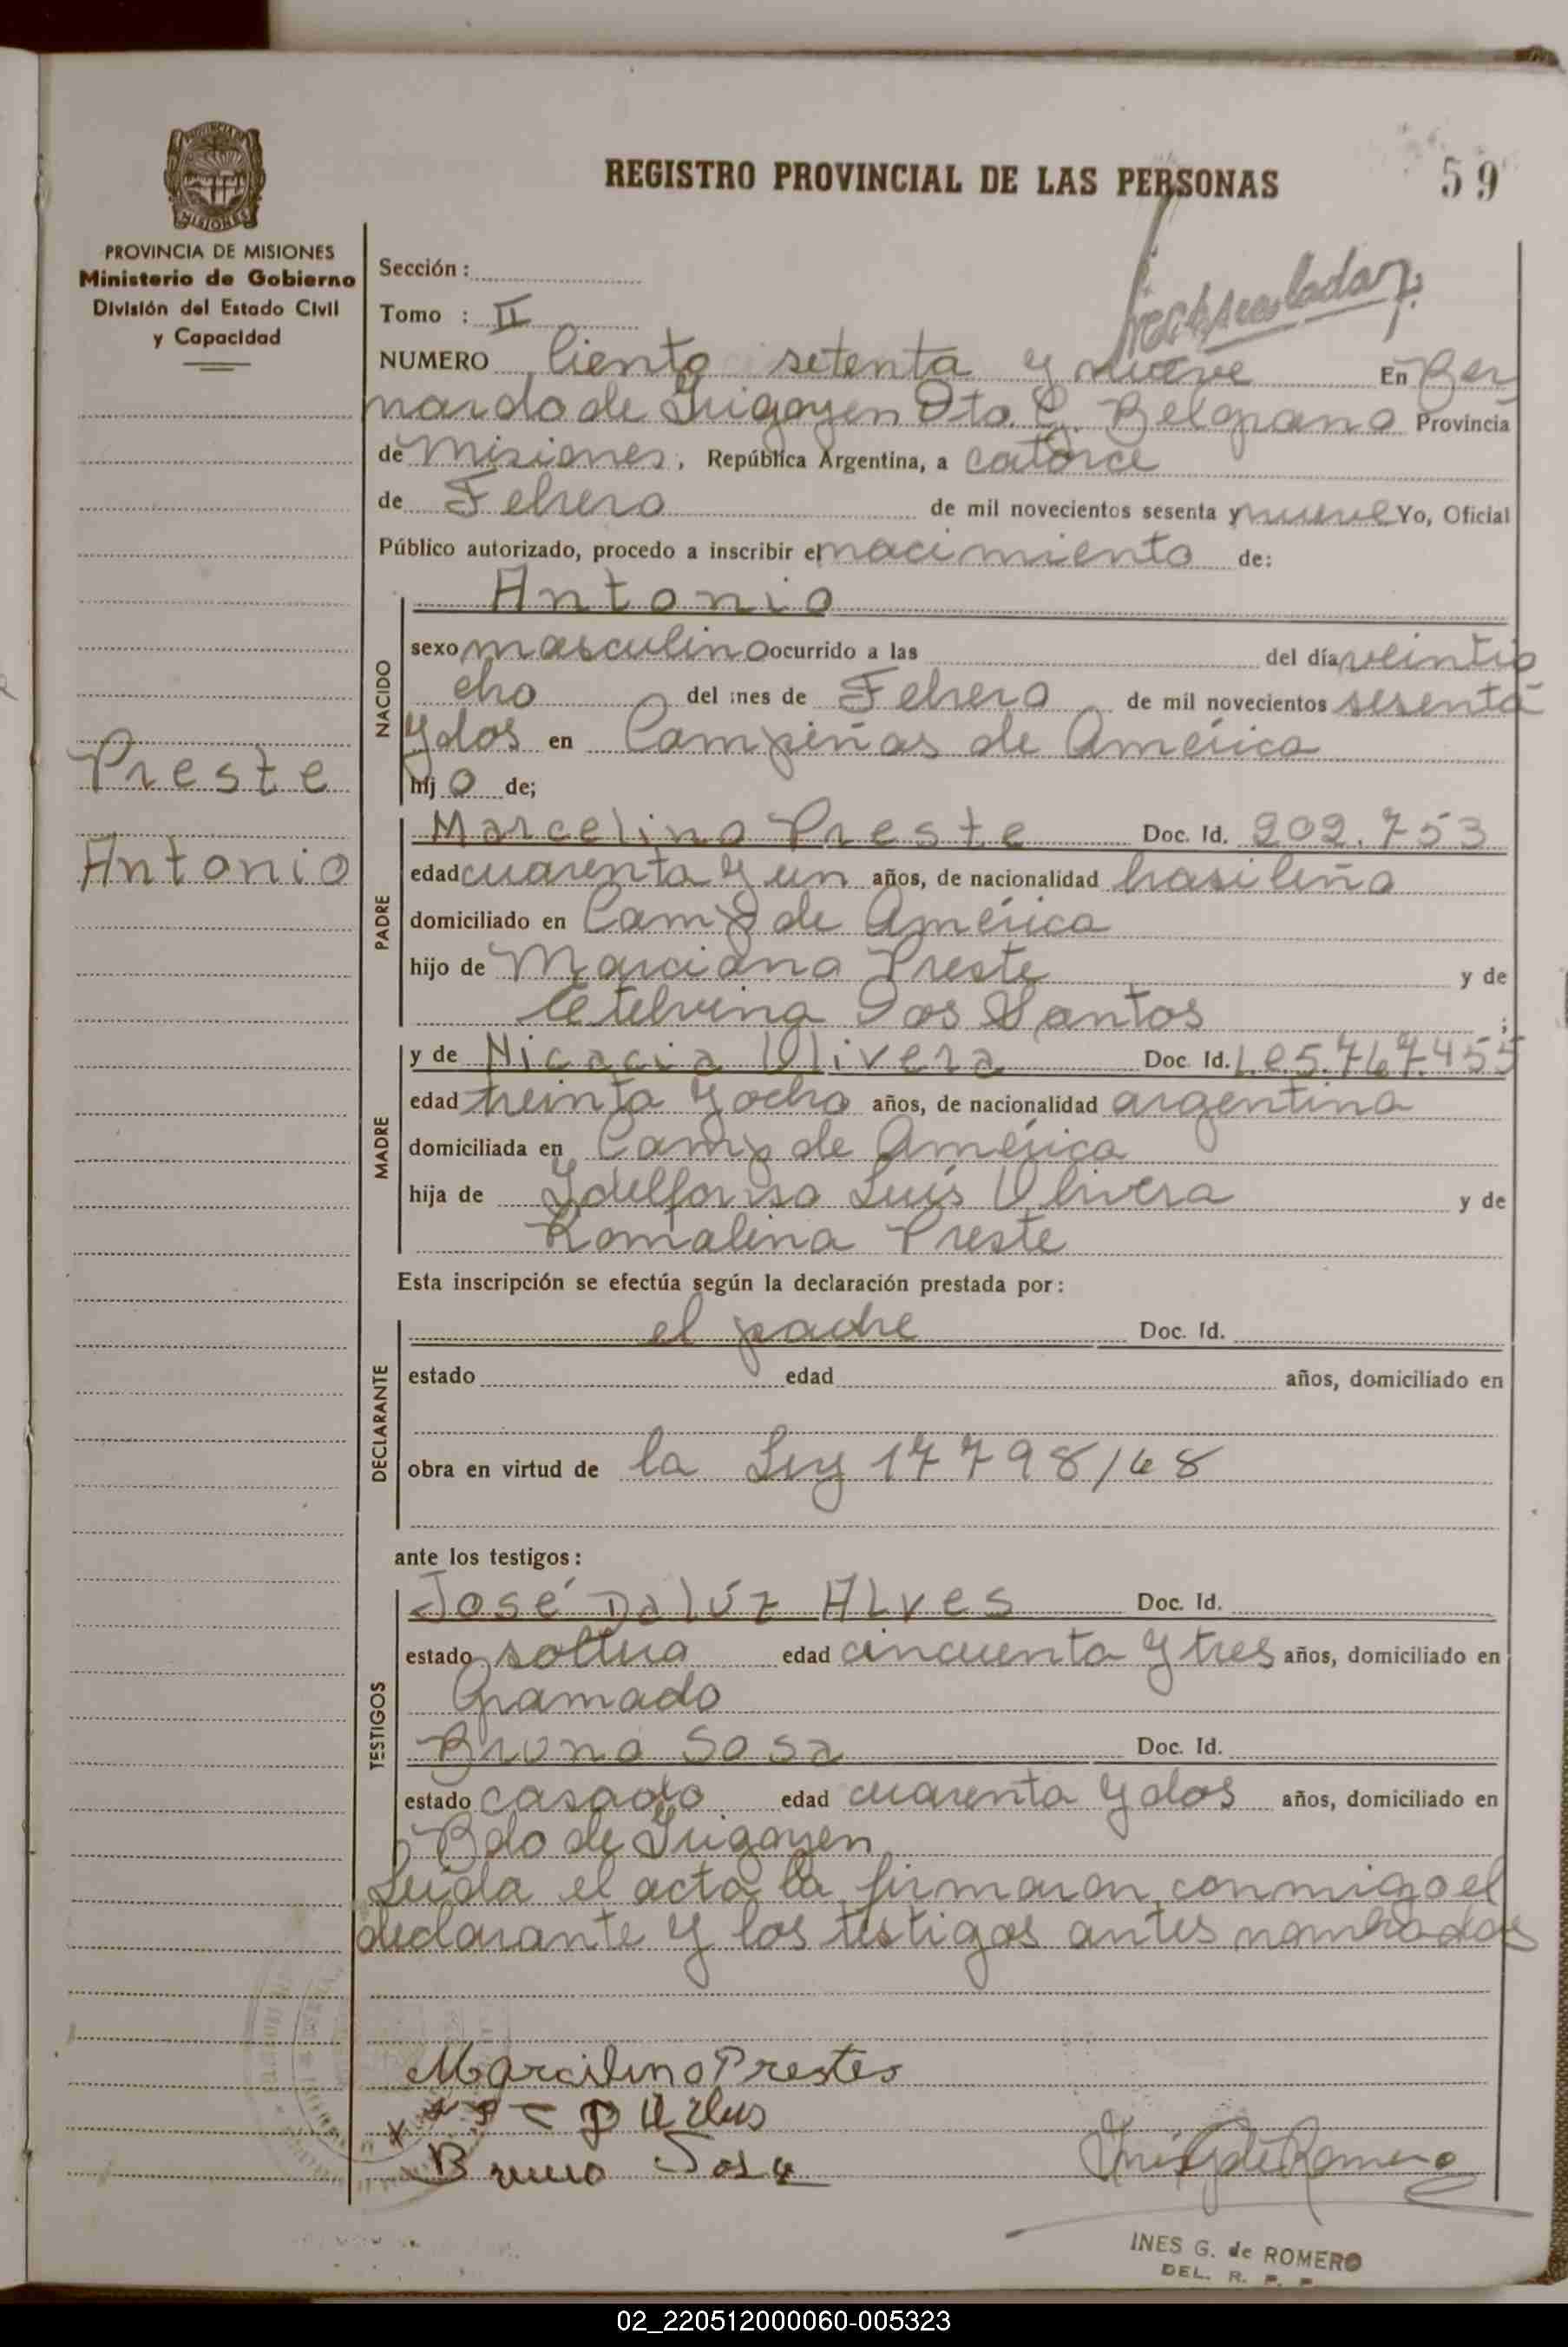 REGISTRO PROVINCIAL DE LAS PERSONAS
59
PROVINCIA DE MISIONES
Ministerio de Gobierno
División del Estado Civil
y Capacidad
Sección:
Tomo : II
NUMERO Ciento setenta y nueve En Ber
nardo de Irigoyen Dto. G. Belgrano Provincia
de Misiones, República Argentina, a catorce
de Febrero de mil novecientos sesenta y nueve Yo, Oficial
Público autorizado, procedo a inscribir el nacimiento de:
NACIDO
Antonio
sexo masculino ocurrido a las del día veintio
cho del mes de Febrero de mil novecientos sesenta
y dos en Campiñas de América
hij o de;
Preste
Antonio
PADRE
Marcelino Preste Doc. Id. 202.753
edad cuarenta y un años, de nacionalidad brasileña
domiciliado en Camp de América
hijo de Marciano Preste y de
Etelvina Dos Santos ;
MADRE
y de Nicacia Olivera Doc. Id. L.C.5.767.455
edad treinta y ocho años, de nacionalidad argentina
domiciliada en Camp de América
hija de Ydelfonso Luís Olivera y de
Romalina Preste
Esta inscripción se efectúa según la declaración prestada por:
DECLARANTE
el padre Doc. Id.
estado edad años, domiciliado en
obra en virtud de la Ley 17798/68
ante los testigos:
TESTIGOS
José Dalúz Alves Doc. Id.
estado soltero edad cincuenta y tres años, domiciliado en
Gramado
Bruno Sosa Doc. Id.
estado casado edad cuarenta y dos años, domiciliado en
Bdo de Irigoyen
Leída el acta la firmaron conmigo el
declarante y los testigos antes nombrados
Marcilino Prestes
Bruno Sosa
Inés G de Romero
INES G. de ROMERO
DEL. R. P. P.
02_220512000060-005323